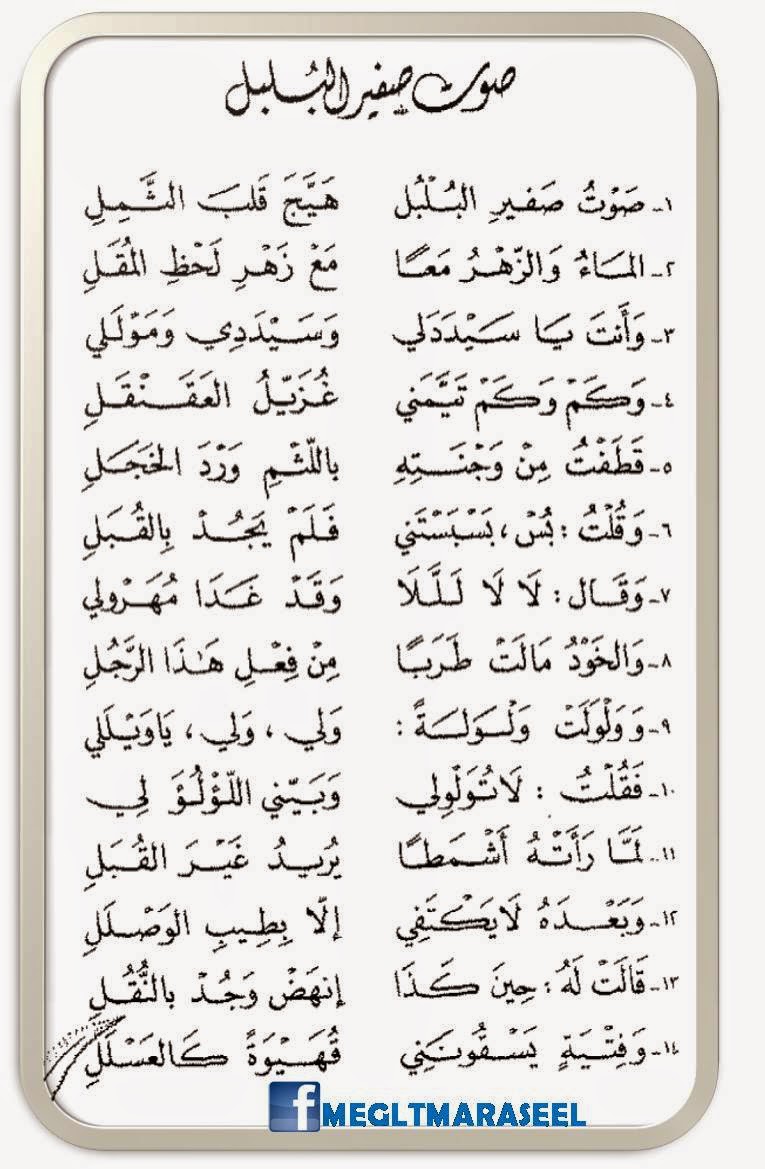 صوت صفير البُلبل
١- صَوْتُ صَفيرِ البُلْبُلِ هَيَّجَ قَلبَ الثَّمِلِ
٢- المَاءُ وَالزَّهْرُ مَعًا مَعْ زَهْرِ لَحْظِ المُقَلِ
٣- وَأَنتَ يَا سَيْدَدَلي وَسَيْدَدِي وَمَوْلَلي
٤- وَكَمْ وَكَمْ تَيَّمَني غُزَيّلُ العَقَنْقَلِ
٥- قَطَفْتُ مِنْ وَجْنَتِهِ باللّثْمِ وَرْدَ الخَجَلِ
٦- وَقُلْتُ : بُسْ ، بَسْبَسْتَني فَلَمْ يَجُدْ بِالقُبَلِ
٧- وَقَال : لَا لَا لَلَلَا وَقَدْ غَدَا مُهَرْولي
٨- وَالخَوْدُ مَالَتْ طَرَبًا مِنْ فِعْلِ هَٰذَا الرَّجُلِ
٩- وَوَلْوَلَتْ وَلْوَلَةً : وَلي ، وَلي ، يَاوَيْلَلي
١٠- فَقُلْتُ : لَاتُوَلْوِلي وَبَيّني اللّؤْلُؤَ لِي
١١- لَمَّا رَأَتْهُ أَشْمَطًا يُرِيدُ غَيْرَ القُبَلِ
١٢- وَبَعْدَهُ لَايَكْتَفِي إلّا بِطِيبِ الوَصْلَلِ
١٣- قَالَتْ لَهُ : حِينَ كَذَا إنهَضْ وَجُدْ بالنُّقُلِ
١٤- وَفِتْيَةٍ يَسْقُونَنِي قُهَيْوَةً كَالعَسْلَلِ
MEGLTMARASEEL